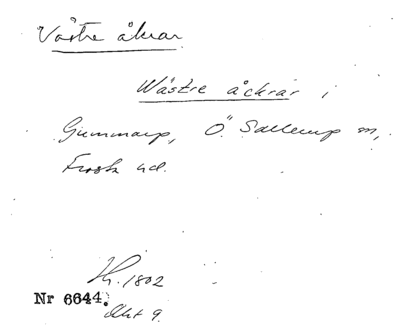 Västre åkrar
Wästre åckrar i
Gummarp, Ö. Sallerup sn,
Frosta hd.
Lh. 1802
Nr 6644.
Akt 9.